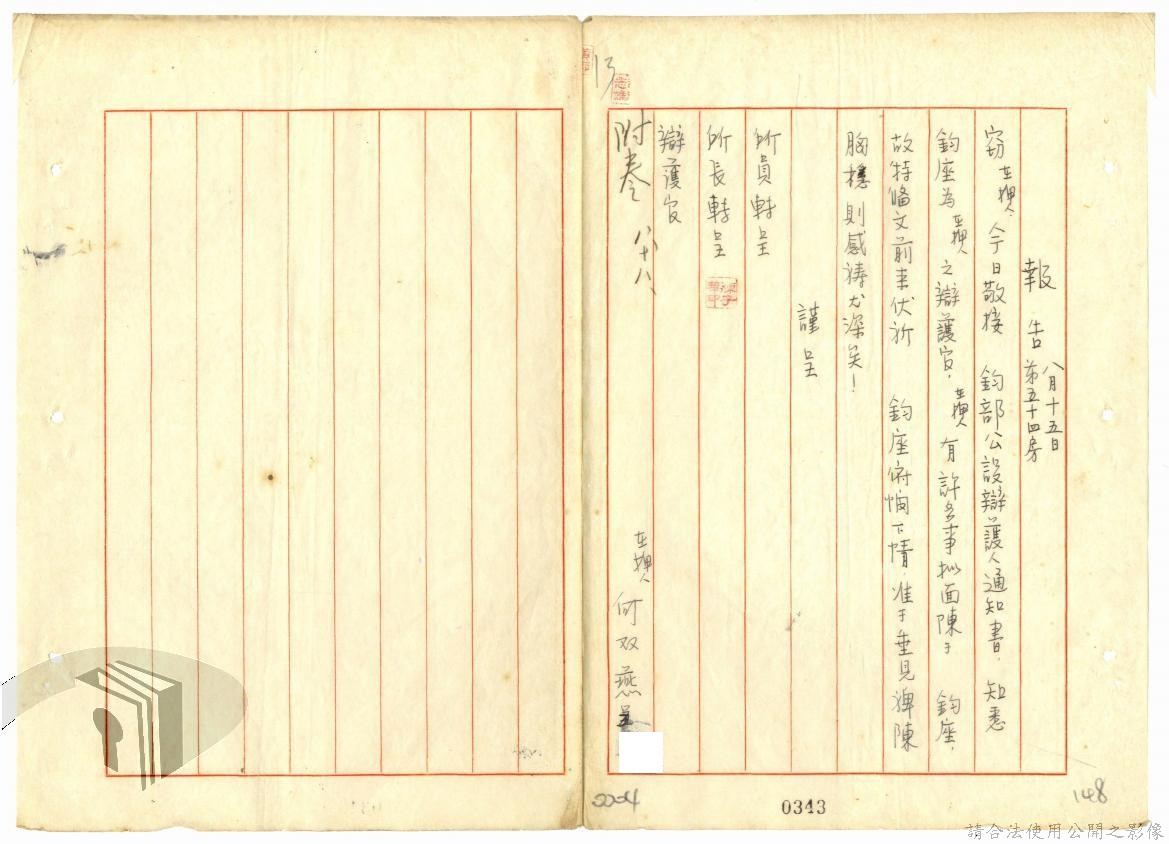 報告 八月十五日
第五十四房
竊在押人今日敬接 鈞部公設辯護人通知書，知悉
鈞座為在押人之辯護官，在押人有許多事擬面陳于 鈞座，
故特備文前來伏祈 鈞座俯恤下情，准于垂見俾陳
胸穩則感禱尤深矣！
謹呈
所員轉呈
所長轉呈
辯護官
附卷 八、十八、
在押人 何双燕 呈
13
2204
0343
148
請合法使用公開之影像